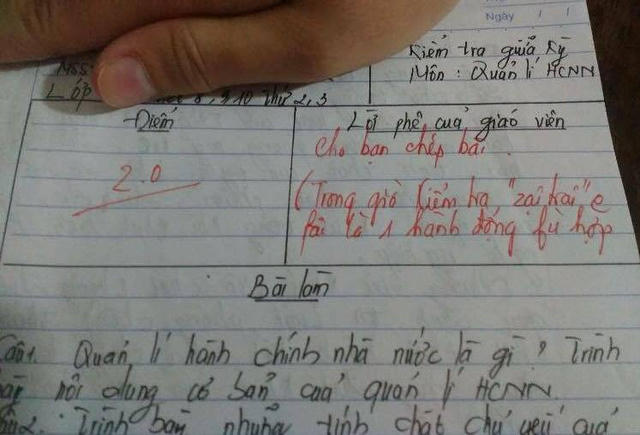 Ngày / /
Kiểm tra giữa kỳ
Môn: Quản lí HCNN
MSS
LỚP 8, 9, 10 thứ 2, 3
Điểm
Lời phê của giáo viên
2.0
Cho bạn chép bài.
(Trong giờ kiểm tra, "zai kai" e
fải là 1 hành động fù hợp
Bài làm
Câu1. Quản lí hành chính nhà nước là gì? Trình
bày nội dung cơ bản của quản lí HCNN.
Trình bày những tính chất chủ yếu của